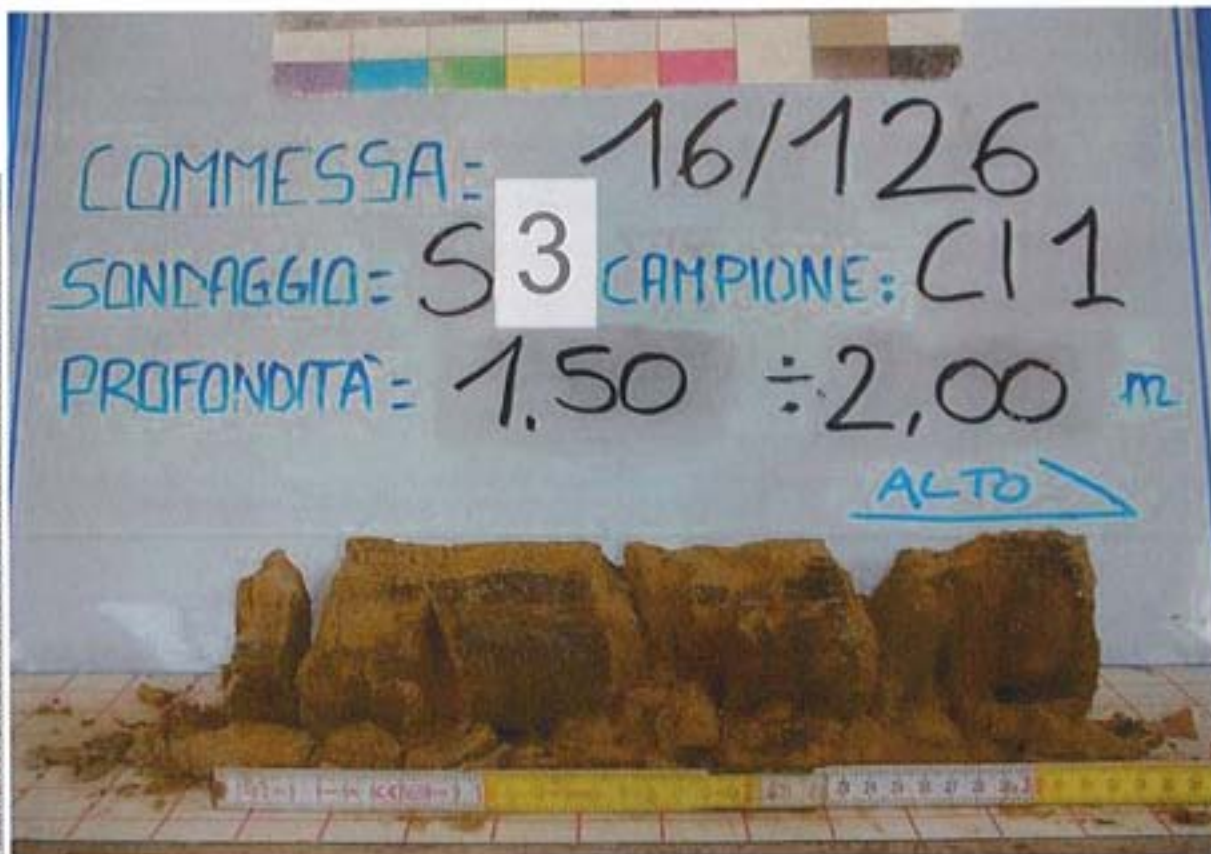 COMMESSA= 16/126
SONDAGGIO= S 3 CAMPIONE: CI 1
PROFONDITÀ= 1.50 ÷ 2,00 m
ALTO